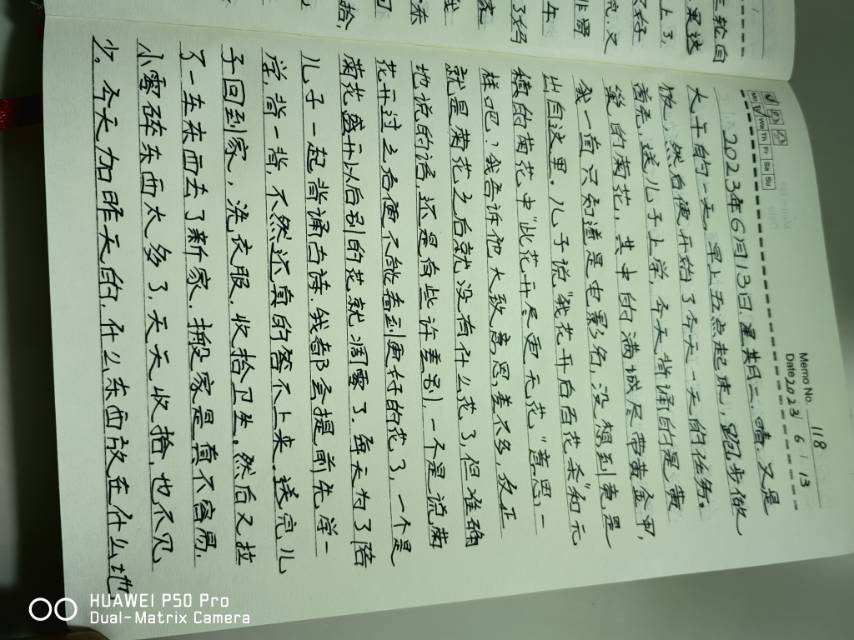 Memo No. 118
Date 2023 / 6 / 13
Mo Tu We Th Fr Sa Su
2023年6月13日.星期二.晴.又是
大干的一天,早上五点起床,跑步做
饭,然后便开始了今天一天的任务。
首先,送儿子上学,今天背诵的是黄
巢的菊花,其中的满城尽带黄金甲,
我一直只知道是电影名,没想到竟是
出自这里.儿子说“我花开后百花杀”和元
稹的菊花中“此花开尽更无花”意思一
样吧?我告诉他大致意思差不多,反正
就是菊花之后就没有什么花了,但准确
地说的话,还是有些许差别,一个是说菊
花开过之后便不能看到更好的花了,一个是
菊花盛开以后别的花就凋零了.每天为了陪
儿子一起背诵古诗.我都会提前先学一
学,背一背,不然还真的答不上来.送完儿
子回到家,洗衣服.收拾卫生。然后又拉
了一车东西去了新家.搬家是真不容易.
小零碎东西太多了.天天收拾,也不见
少。今天加昨天的.什么东西放在什么地
三轮回
上了.
又好
拾
HUAWEI P50 Pro
Dual-Matrix Camera